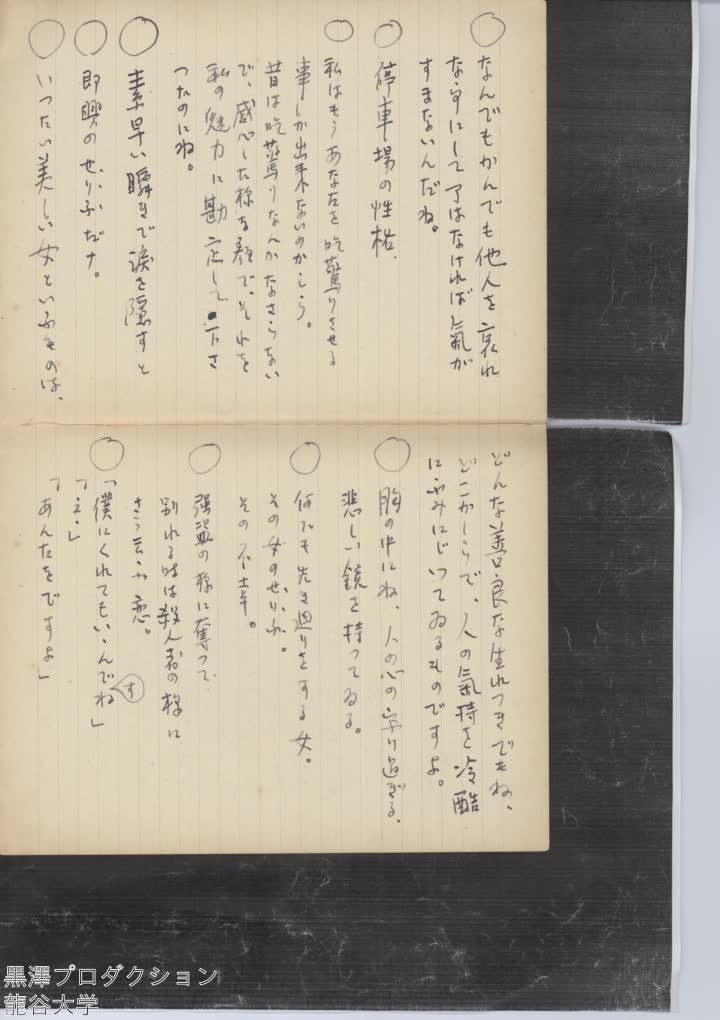 ○なんでもかんでも他人を哀れ
な、ダシにして了はなければ氣が
すまないんだね。
○停車場の性格、
○私はもうあなたを吃驚りさせる
事しか出来ないのかしら。
昔は吃驚りなんかなさらない
で、感心した様な顔で、それを
私の魅力に勘定して下さ
つたのにね。
○素早い瞬きで涙を隠すと
○即興のせりふだナ。
○いつたい美しい女といふものは、
どんな善良な生れつきでもね、
どこかしらで、人の氣持を冷酷
にふみにじつてゐるものですよ。
○胸の中にね、人の心の寫り過ぎる、
悲しい鏡を持つてゐる。
○何でも先き廻りをする女。
その女のせりふ。
その不幸。
○强盗の様に奪つて
別れる時は殺人者の様に
さう云ふ恋。
○「僕にくれてもいゝんですね」
「え」
「あんたをですよ」
黒澤プロダクション
龍谷大学